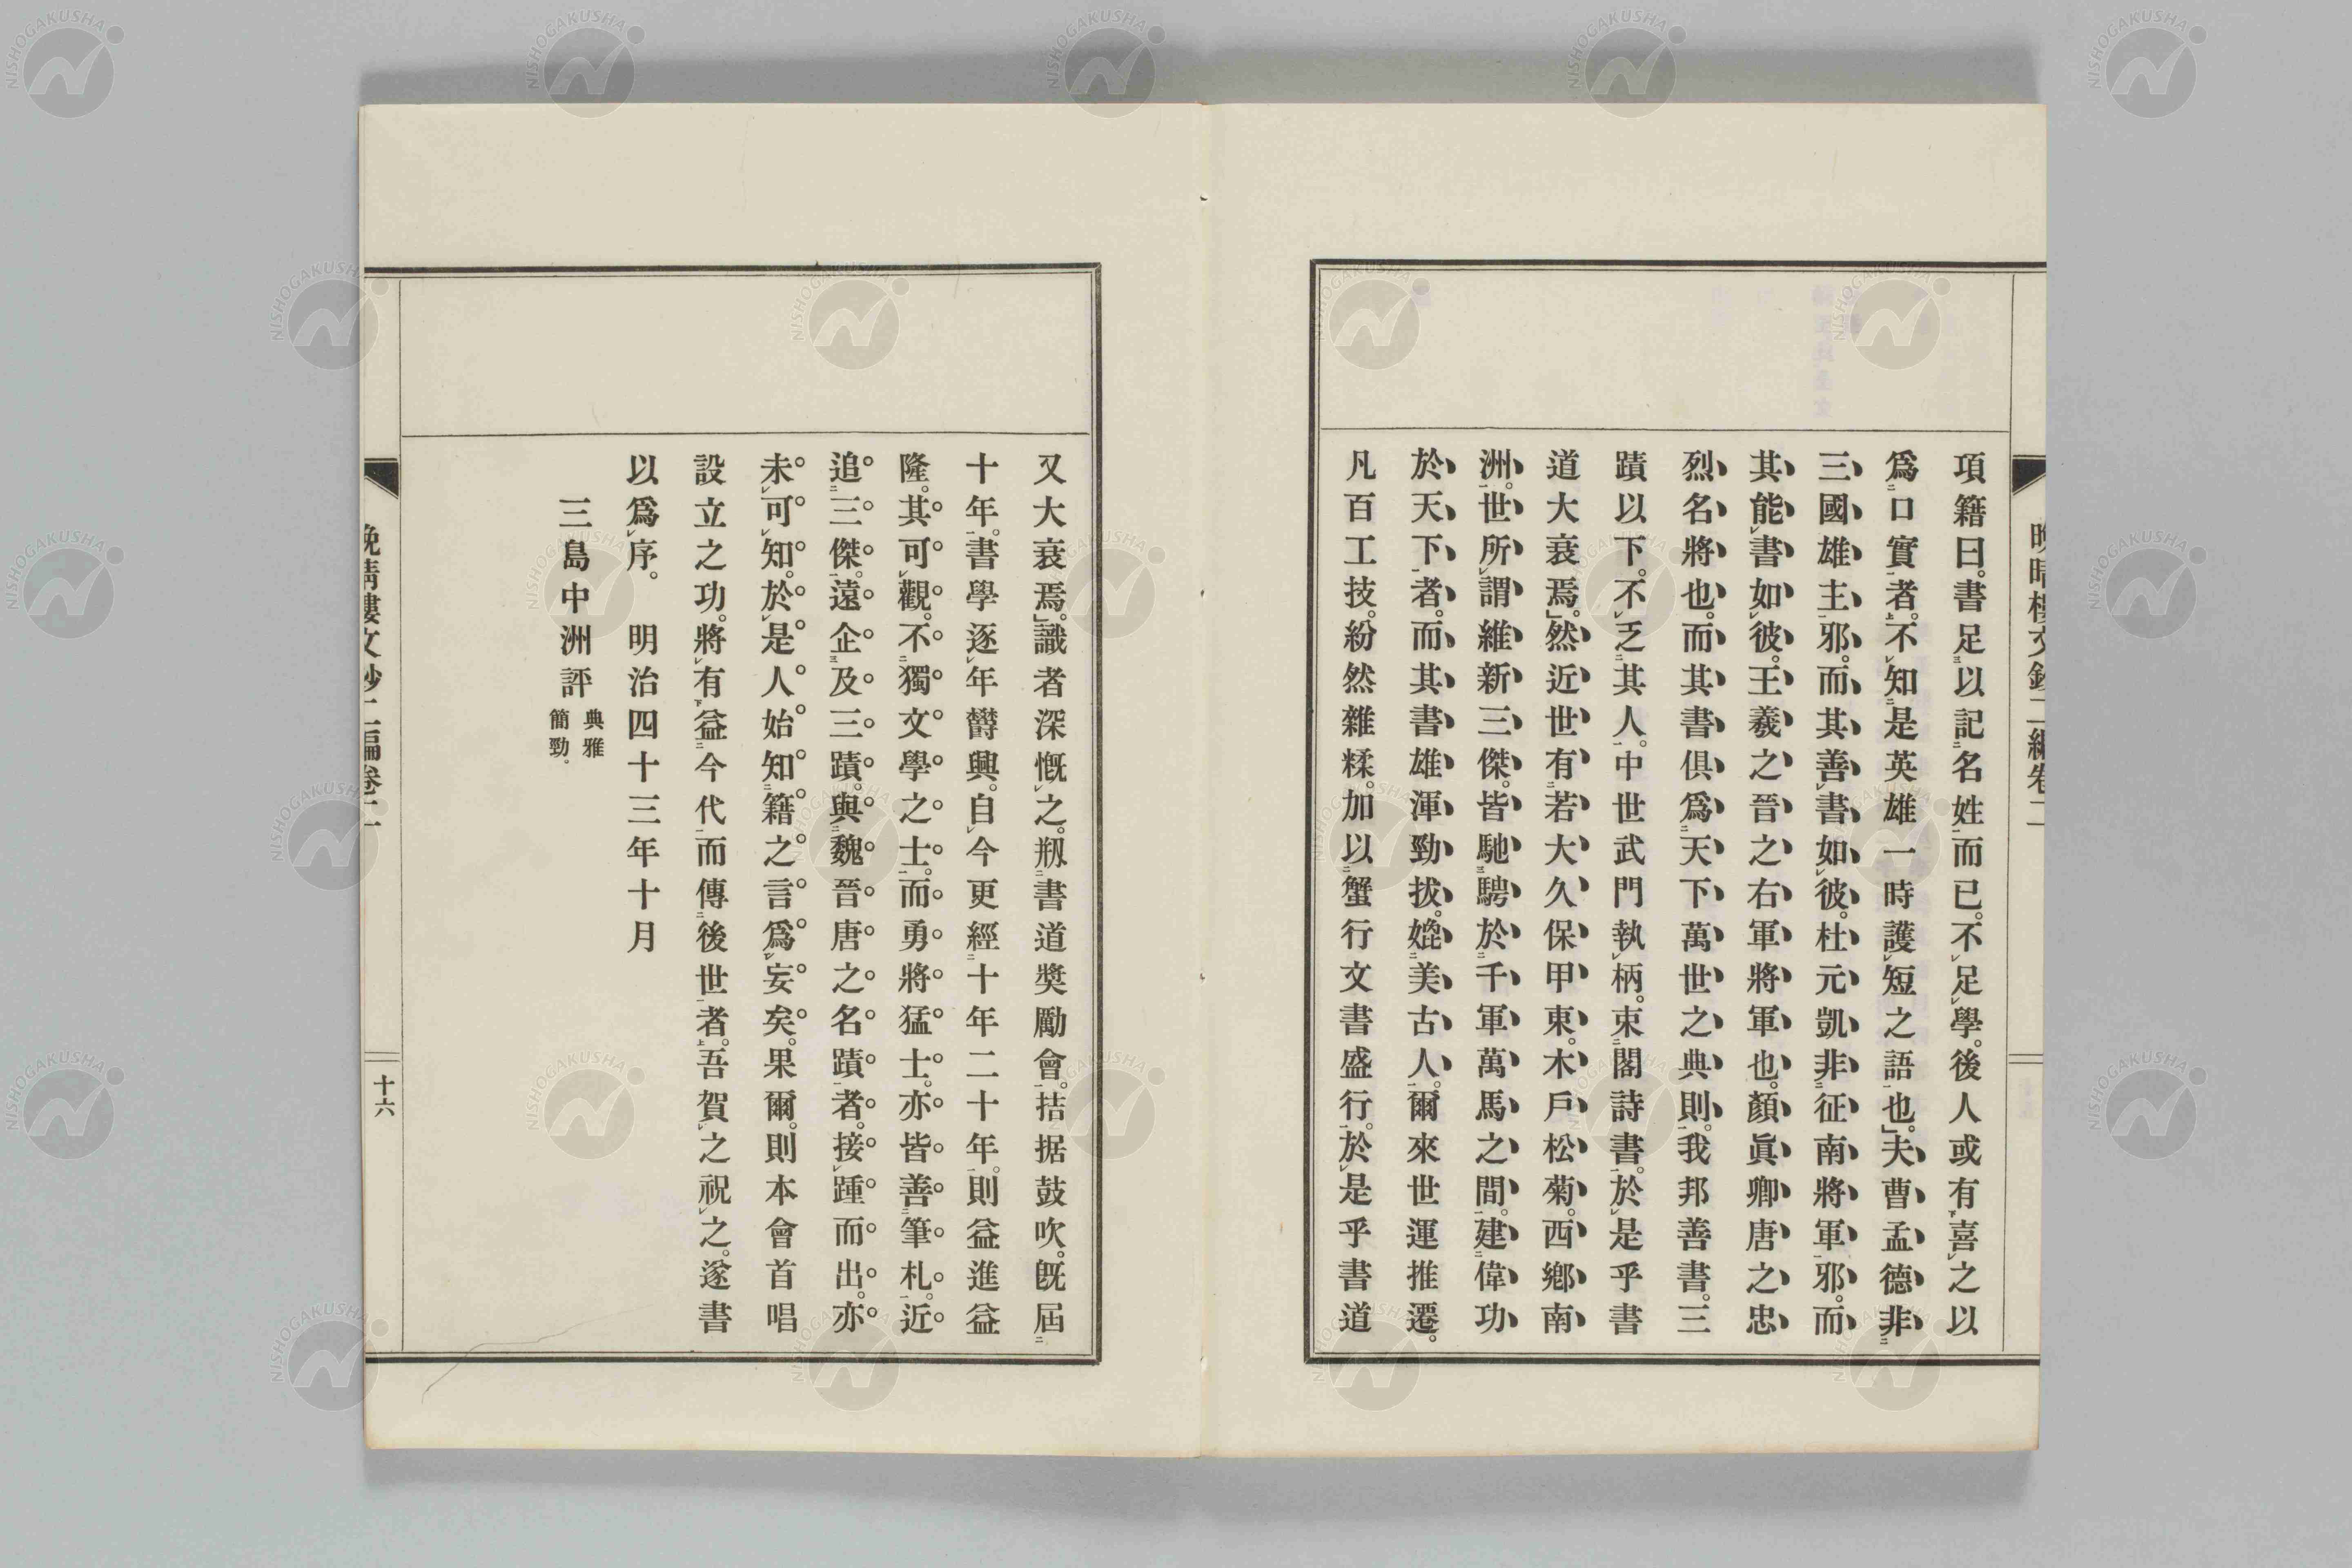 晩晴樓文鈔二編卷二
項籍曰。書足以記名姓而已。不足學。後人或有喜之以
爲口實者。不知是英雄一時護短之語也。夫曹孟德非
三國雄主邪。而其善書如彼。杜元凱非征南將軍邪。而
其能書如彼。王羲之晉之右軍將軍也。顏眞卿唐之忠
烈名將也。而其書俱爲天下萬世之典則。我邦善書。三
蹟以下。不乏其人。中世武門執柄。束閣詩書。於是乎書
道大衰焉。然近世有若大久保甲東。木戶松菊。西鄉南
洲。世所謂維新三傑。皆馳騁於千軍萬馬之間。建偉功
於天下者。而其書雄渾勁拔。媲美古人。爾來世運推遷。
凡百工技。紛然雜糅。加以蟹行文書盛行。於是乎書道
又大衰焉。識者深慨之。剏書道奬勵會。拮据鼓吹。旣屆
十年。書學逐年欝興。自今更經十年二十年。則益進益
隆。其可觀。不獨文學之士。而勇將猛士。亦皆善筆札。近
追三傑。遠企及三蹟。與魏晉唐之名蹟者。接踵而出。亦
未可知。於是人始知籍之言爲妄矣。果爾。則本會首唱
設立之功。將有益今代而傳後世者。吾賀之祝之。遂書
以爲序。　明治四十三年十月
三島中洲評　典雅
簡勁。
晩晴樓文鈔二編卷二
十六
NISHOGAKUSHA